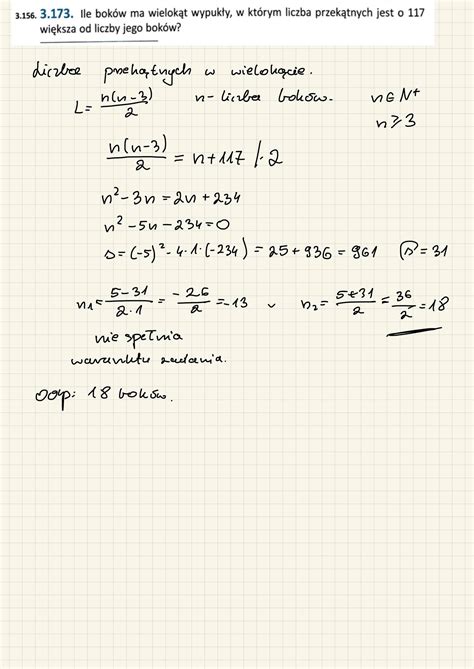 3.156. 3.173. Ile boków ma wielokąt wypukły, w którym liczba przekątnych jest o 117
większa od liczby jego boków?
Liczba przekątnych w wielokącie.
L = n(n-3)/2 n - liczba boków. n ∈ N⁺
n ⩾ 3
n(n-3)/2 = n+117 /·2
n² - 3n = 2n + 234
n² - 5n - 234 = 0
Δ = (-5)² - 4·1·(-234) = 25 + 936 = 961 √Δ = 31
n₁ = 5-31/2·1 = -26/2 = -13 ∨ n₂ = 5+31/2 = 36/2 = 18
nie spełnia
warunku zadania.
Odp: 18 boków.